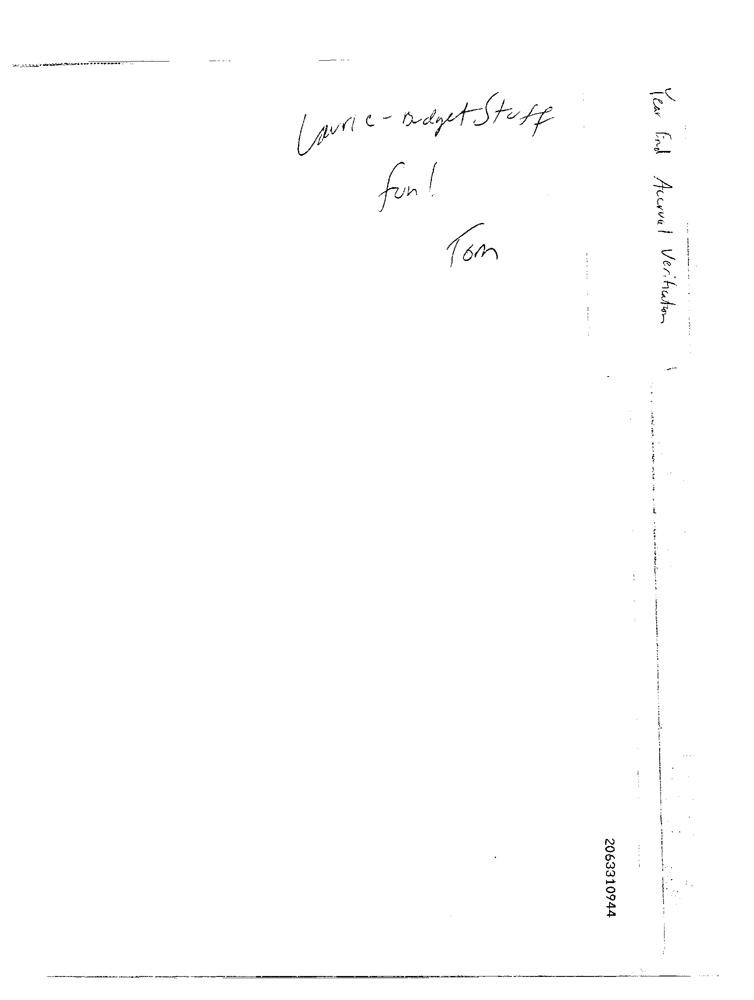 Laurie - Budget Stuff
fun!
Tom
Year End Accrual Verification
2063310944